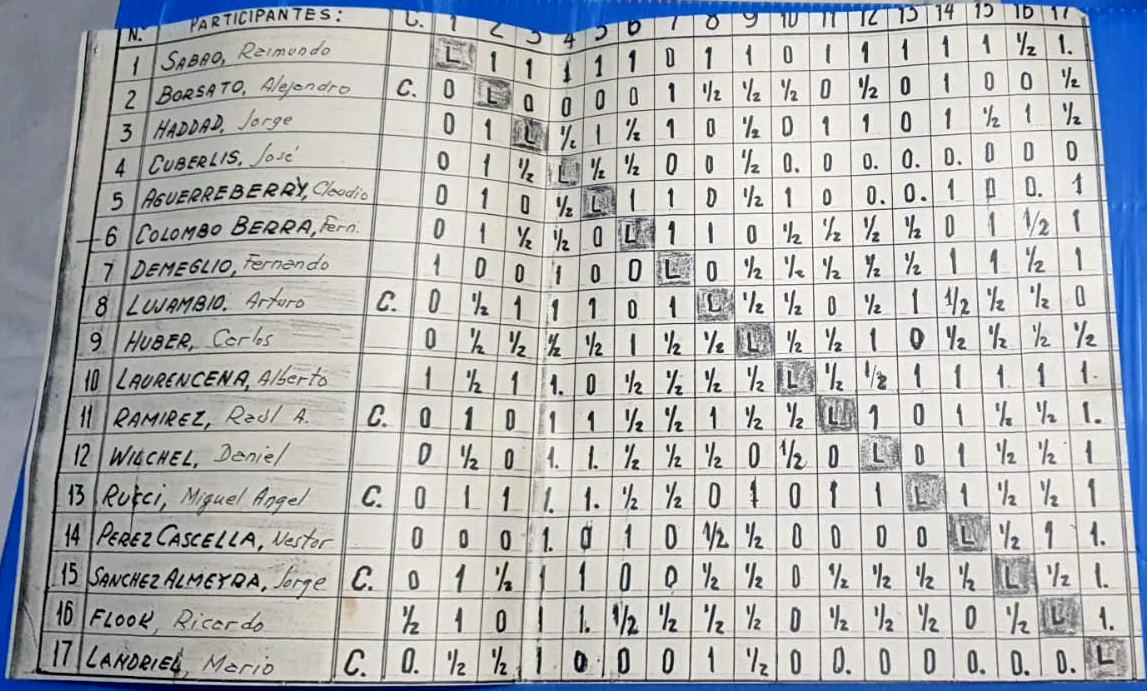 N. PARTICIPANTES: C. 1 2 3 4 5 6 7 8 9 10 11 12 13 14 15 16 17
1 SABAO, Raimundo L 1 1 1 1 1 0 1 1 0 1 1 1 1 1 ½ 1.
2 BORSATO, Alejandro C. 0 L 0 0 0 0 1 ½ ½ ½ 0 ½ 0 1 0 0 ½
3 HADDAD, Jorge 0 1 L ½ 1 ½ 1 0 ½ 0 1 1 0 1 ½ 1 ½
4 CUBERLIS, José 0 1 ½ L ½ ½ 0 0 ½ 0. 0 0. 0. 0. 0 0 0
5 AGUERREBERRY, Claudio 0 1 0 ½ L 1 1 0 ½ 1 0 0. 0. 1 0 0. 1
6 COLOMBO BERRA, Fern. 0 1 ½ ½ 0 L 1 1 0 ½ ½ ½ ½ 0 1 1/2 1
7 DEMEGLIO, Fernando 1 0 0 1 0 0 L 0 ½ ½ ½ ½ ½ 1 1 ½ 1
8 LUJAMBIO. Arturo C. 0 ½ 1 1 1 0 1 L ½ ½ 0 ½ 1 1/2 ½ ½ 0
9 HUBER, Carlos 0 ½ ½ ½ ½ 1 ½ ½ L ½ ½ 1 0 ½ ½ ½ ½
10 LAURENCENA, Alberto 1 ½ 1 1. 0 ½ ½ ½ ½ L ½ 1/2 1 1 1 1 1.
11 RAMIREZ, Raúl A. C. 0 1 0 1 1 ½ ½ 1 ½ ½ L 1 0 1 ½ ½ 1.
12 WILCHEL, Daniel 0 ½ 0 1. 1. ½ ½ ½ 0 1/2 0 L 0 1 ½ ½ 1
13 RUCCI, Miguel Angel C. 0 1 1 1. 1. ½ ½ 0 1 0 1 1 L 1 ½ ½ 1
14 PEREZ CASCELLA, Nestor 0 0 0 1. 0 1 0 1/2 ½ 0 0 0 0 L ½ 1 1.
15 SANCHEZ ALMEYRA, Jorge C. 0 1 ½ 1 1 0 0 ½ ½ 0 ½ ½ ½ ½ L ½ 1.
16 FLOOK, Ricardo ½ 1 0 1 1. 1/2 ½ ½ ½ 0 ½ ½ ½ 0 ½ L 1.
17 LANDRIEL, Mario C. 0. ½ ½ 1 0 0 0 1 ½ 0 0. 0 0 0. 0. 0. L